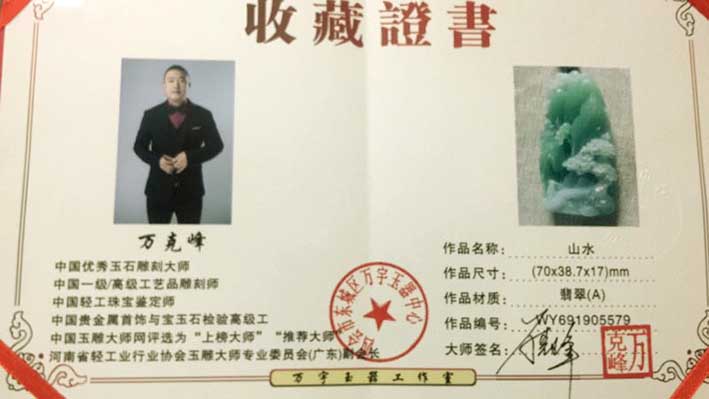 收藏證書
万克峰
中国优秀玉石雕刻大师
中国一级/高级工艺品雕刻师
中国轻工珠宝鉴定师
中国贵金属首饰与宝玉石检验高级工
中国玉雕大师网评选为“上榜大师”“推荐大师”
河南省轻工业行业协会玉雕大师专业委员会(广东)副会长
市东城区万宇玉器中心
作品名称: 山水
作品尺寸: (70x38.7x17)mm
作品材质: 翡翠(A)
作品编号: WY691905579
大师签名:
万克峰
万宇玉器工作室